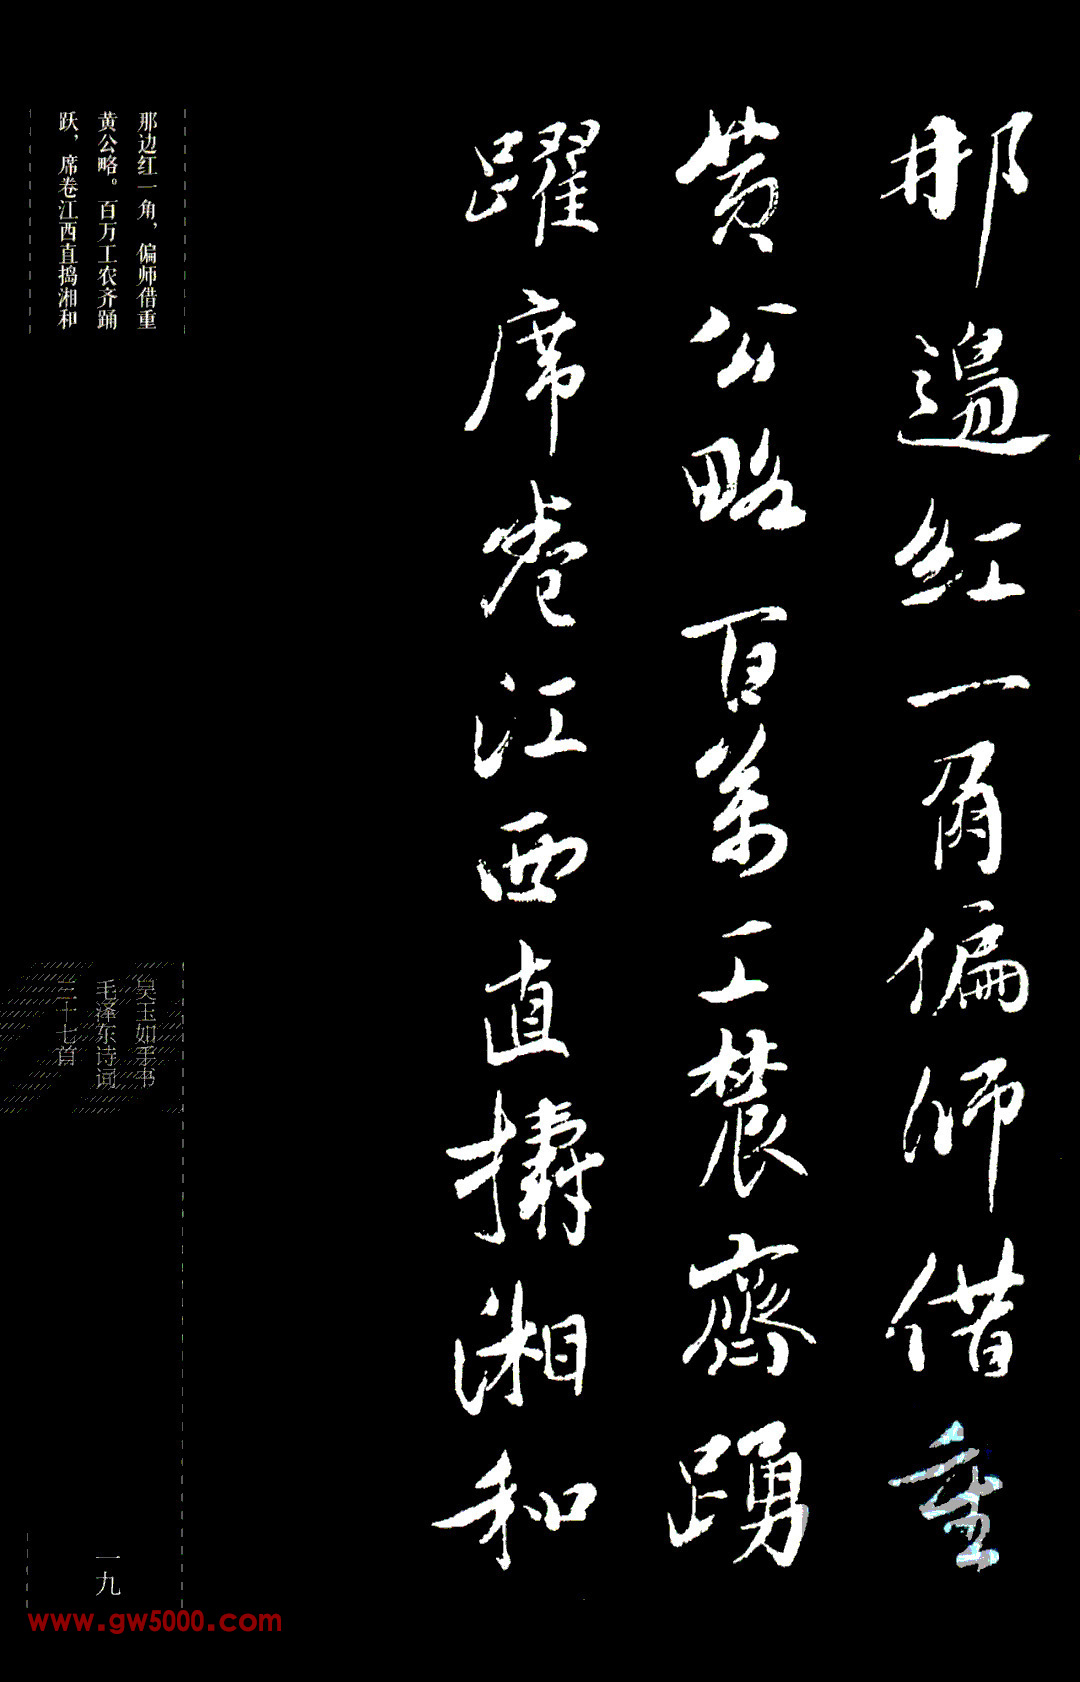 那邊紅一角偏師借重
黃公略百萬工農齊踴
躍席卷江西直擣湘和
那边红一角，偏师借重
黄公略。百万工农齐踊
跃，席卷江西直捣湘和
吴玉如手书
毛泽东诗词
三十七首
一九
www.gw5000.com